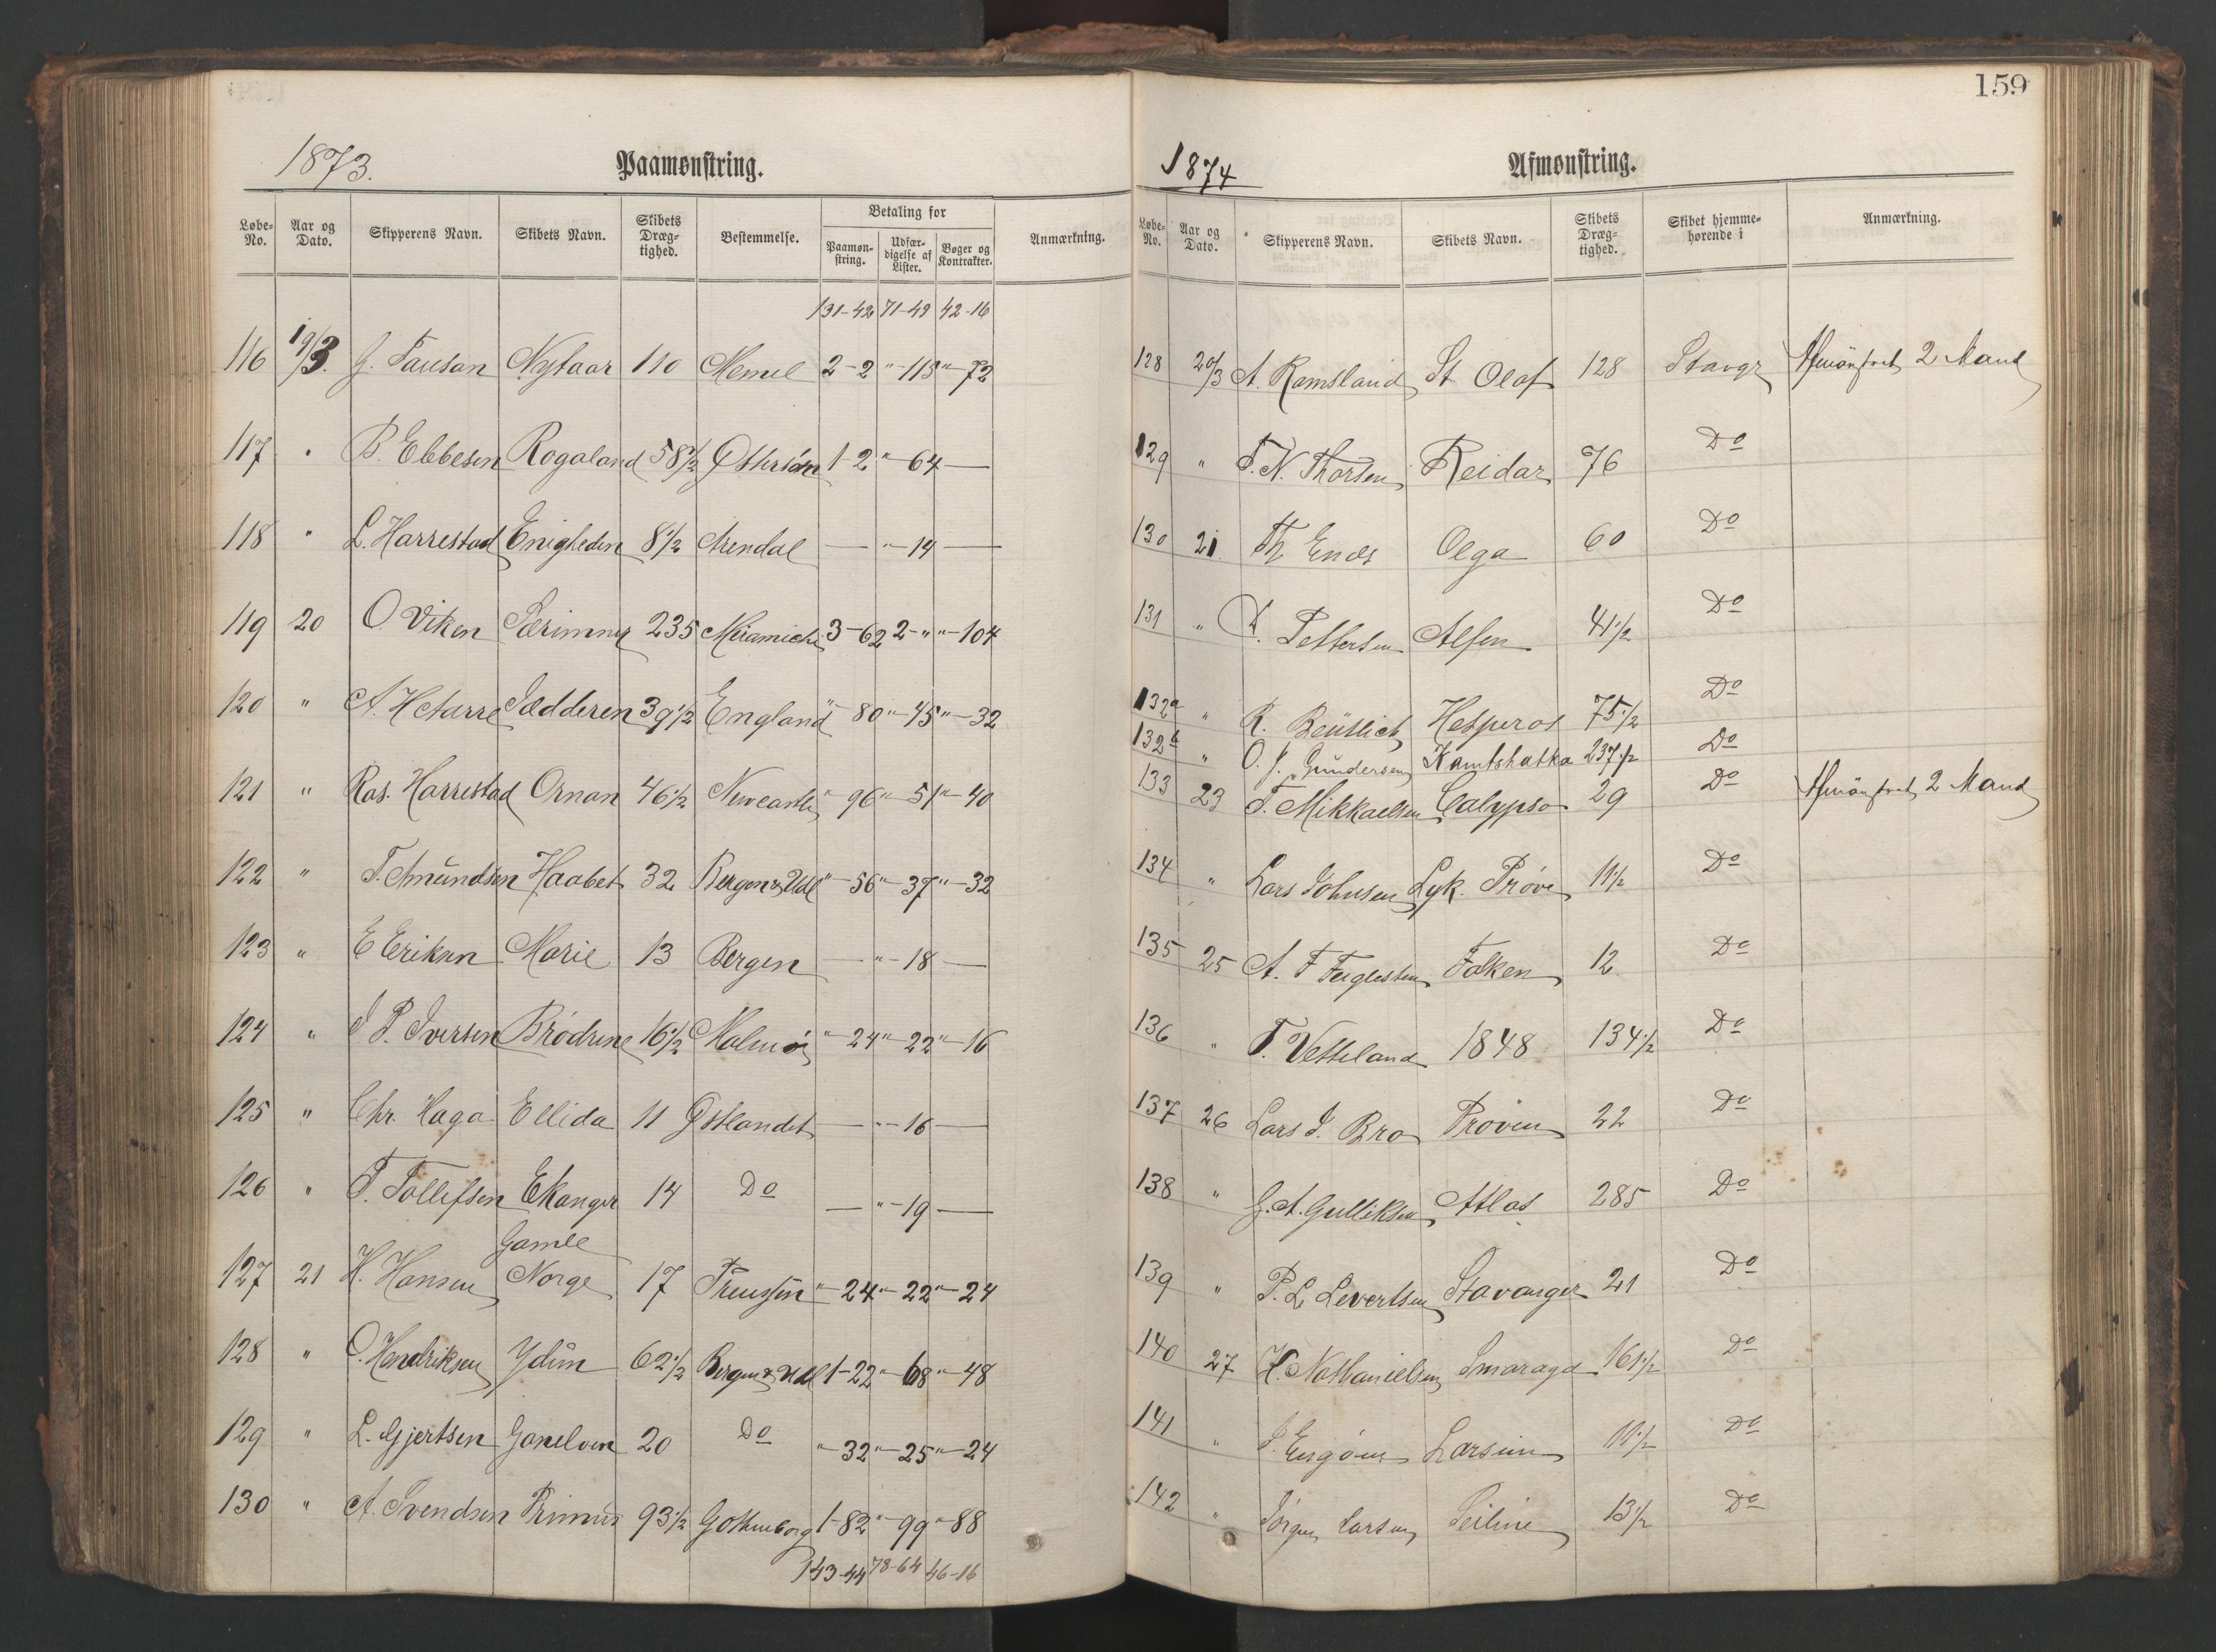 159
1873.
Paamønstring.
Løbe-No. Aar og Dato. Skipperens Navn. Skibets Navn. Skibets Dræg-tighed. Bestemmelse. Betaling for Paamøn-string. Udfær-digelse af Lister. Bøger og Kontrakter. Anmærkning.
131-42 71-49 42-16
116 19/3. Nytaar 110 Memel 2-2 "-115 "-72
117 " B. Ebbesen Rogaland 58½ 1-2 "-64 —
118 " L. Harrestad Enigheden 8½ Arendal — "-14 —
119 20 O. Viken Særimner 235 Miramichi 3-62 2-" "-104
120 " Sædderen 39½ England "-80 "-45 "-32
121 " Ras. Harrestad Ornan 46½ Newcastle "-96 "-51 "-40
122 " T. Amundsen Haabet 32 Bergen & Udl "-56 "-37 "-32
123 " E Eriksen Marie 13 Bergen — "-18 —
124 " J P. Iversen Brødrene 16½ Malmø "-24 "-22 "-16
125 " Chr. Haga Ellida 11 Østlandet — "-16 —
126 " T. Tollefsen Ekanger 14 Do — "-19 —
127 21 H. Hansen Gamle Norge 17 Preussen "-24 "-22 "-24
128 " O. Hendriksen Ydun 62½ Bergen & Udl 1-22 "-68 "-48
129 " L. Gjertsen Ganelven 20 Do "-32 "-25 "-24
130 " A. Svendsen Primus 93½ Gothenborg 1-82 "-99 "-88
143-44 78-64 46-16
1874
Afmønstring.
Løbe-No. Aar og Dato. Skipperens Navn. Skibets Navn. Skibets Dræg-tighed. Skibet hjemme-hørende i Anmærkning.
128 20/3 A. Ramsland St. Olaf 128 Stavgr Afmönstret 2 Mand
129 " T. N. Thorsen Reidar 76 Do
130 21 Th Enes Olga 60 Do
131 " Pettersen Alfen 41½ Do
132a " R. Beütlich Hesperos 75½ Do
132b " O. J. Gundersen Kamtshatka 237½ Do
133 23 T. Mikkaelsen Calypso 29 Do Afmönstret 2 Mand
134 " Lars Johnsen Lyk. Prøve 11½ Do
135 25 A. F Fuglesten Falken 12 Do
136 " T. Vetteland 1848 134½ Do
137 26 Lars J. Bro Prøven 22 Do
138 " G. A. Gulliksen Atlas 285 Do
139 " P. L Levertsen Stavanger 21 Do
140 27 H. Nathanielsen Smaragd 161½ Do
141 " Larsine 11½ Do
142 " Jörgen Larsen Seiline 13½ Do